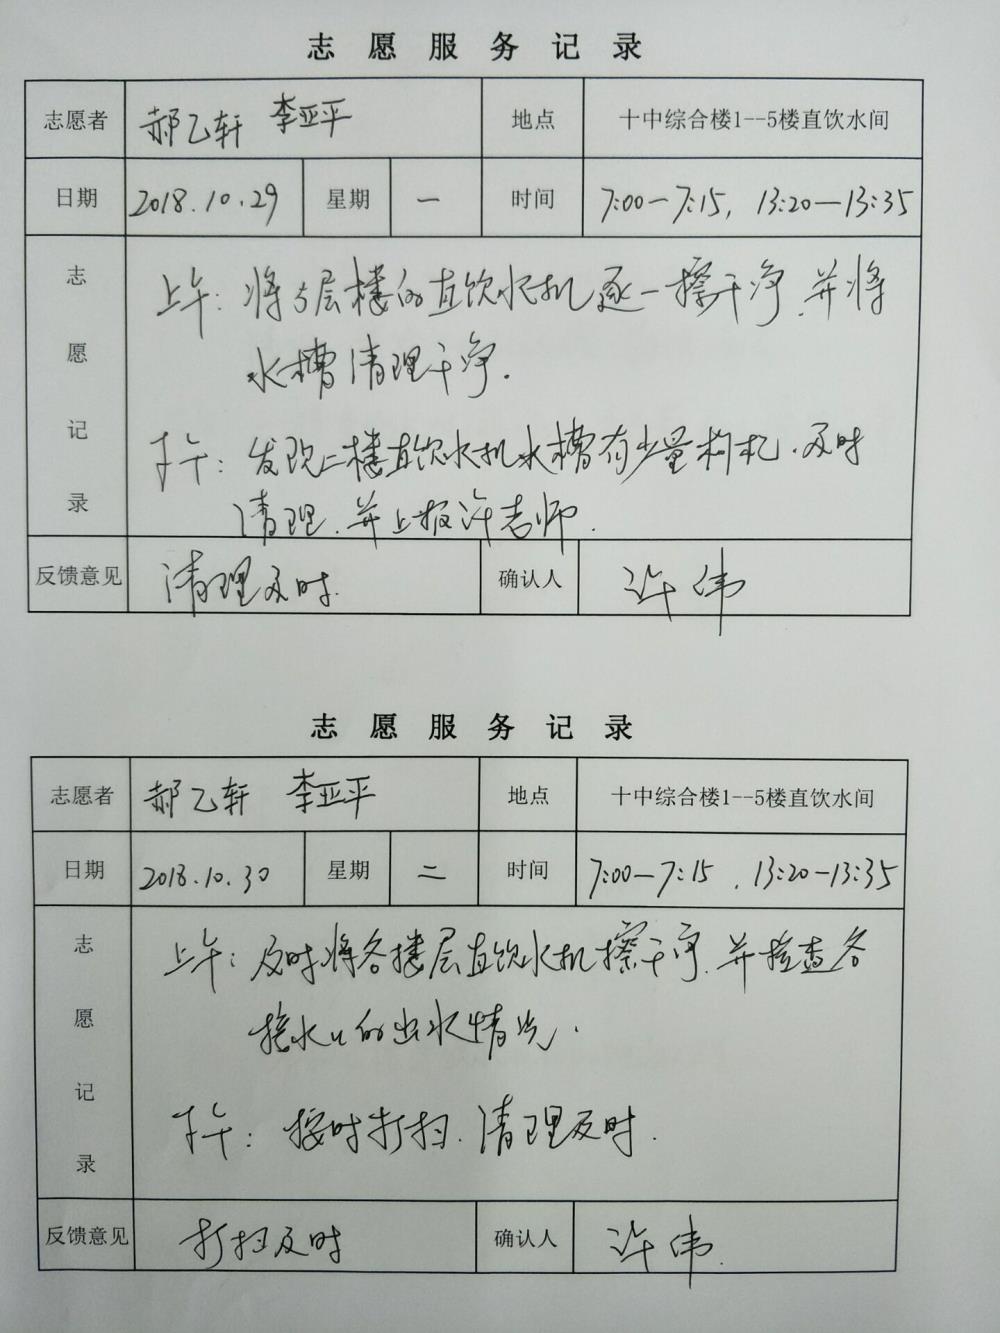 志愿服务记录
志愿者 郝乙轩 李亚平 地点 十中综合楼1--5楼直饮水间
日期 2018.10.29 星期 一 时间 7:00—7:15, 13:20—13:35
志愿记录
上午：将5层楼的直饮水机逐一擦干净.并将
水槽清理干净.
下午：发现二楼直饮水机水槽有少量枸杞.及时
清理.并上报许老师.
反馈意见 清理及时. 确认人 许伟
志愿服务记录
志愿者 郝乙轩 李亚平 地点 十中综合楼1--5楼直饮水间
日期 2018.10.30 星期 二 时间 7:00—7:15 , 13:20—13:35
志愿记录
上午：及时将各楼层直饮水机擦干净.并检查各
接水口的出水情况.
下午：按时打扫.清理及时.
反馈意见 打扫及时 确认人 许伟.